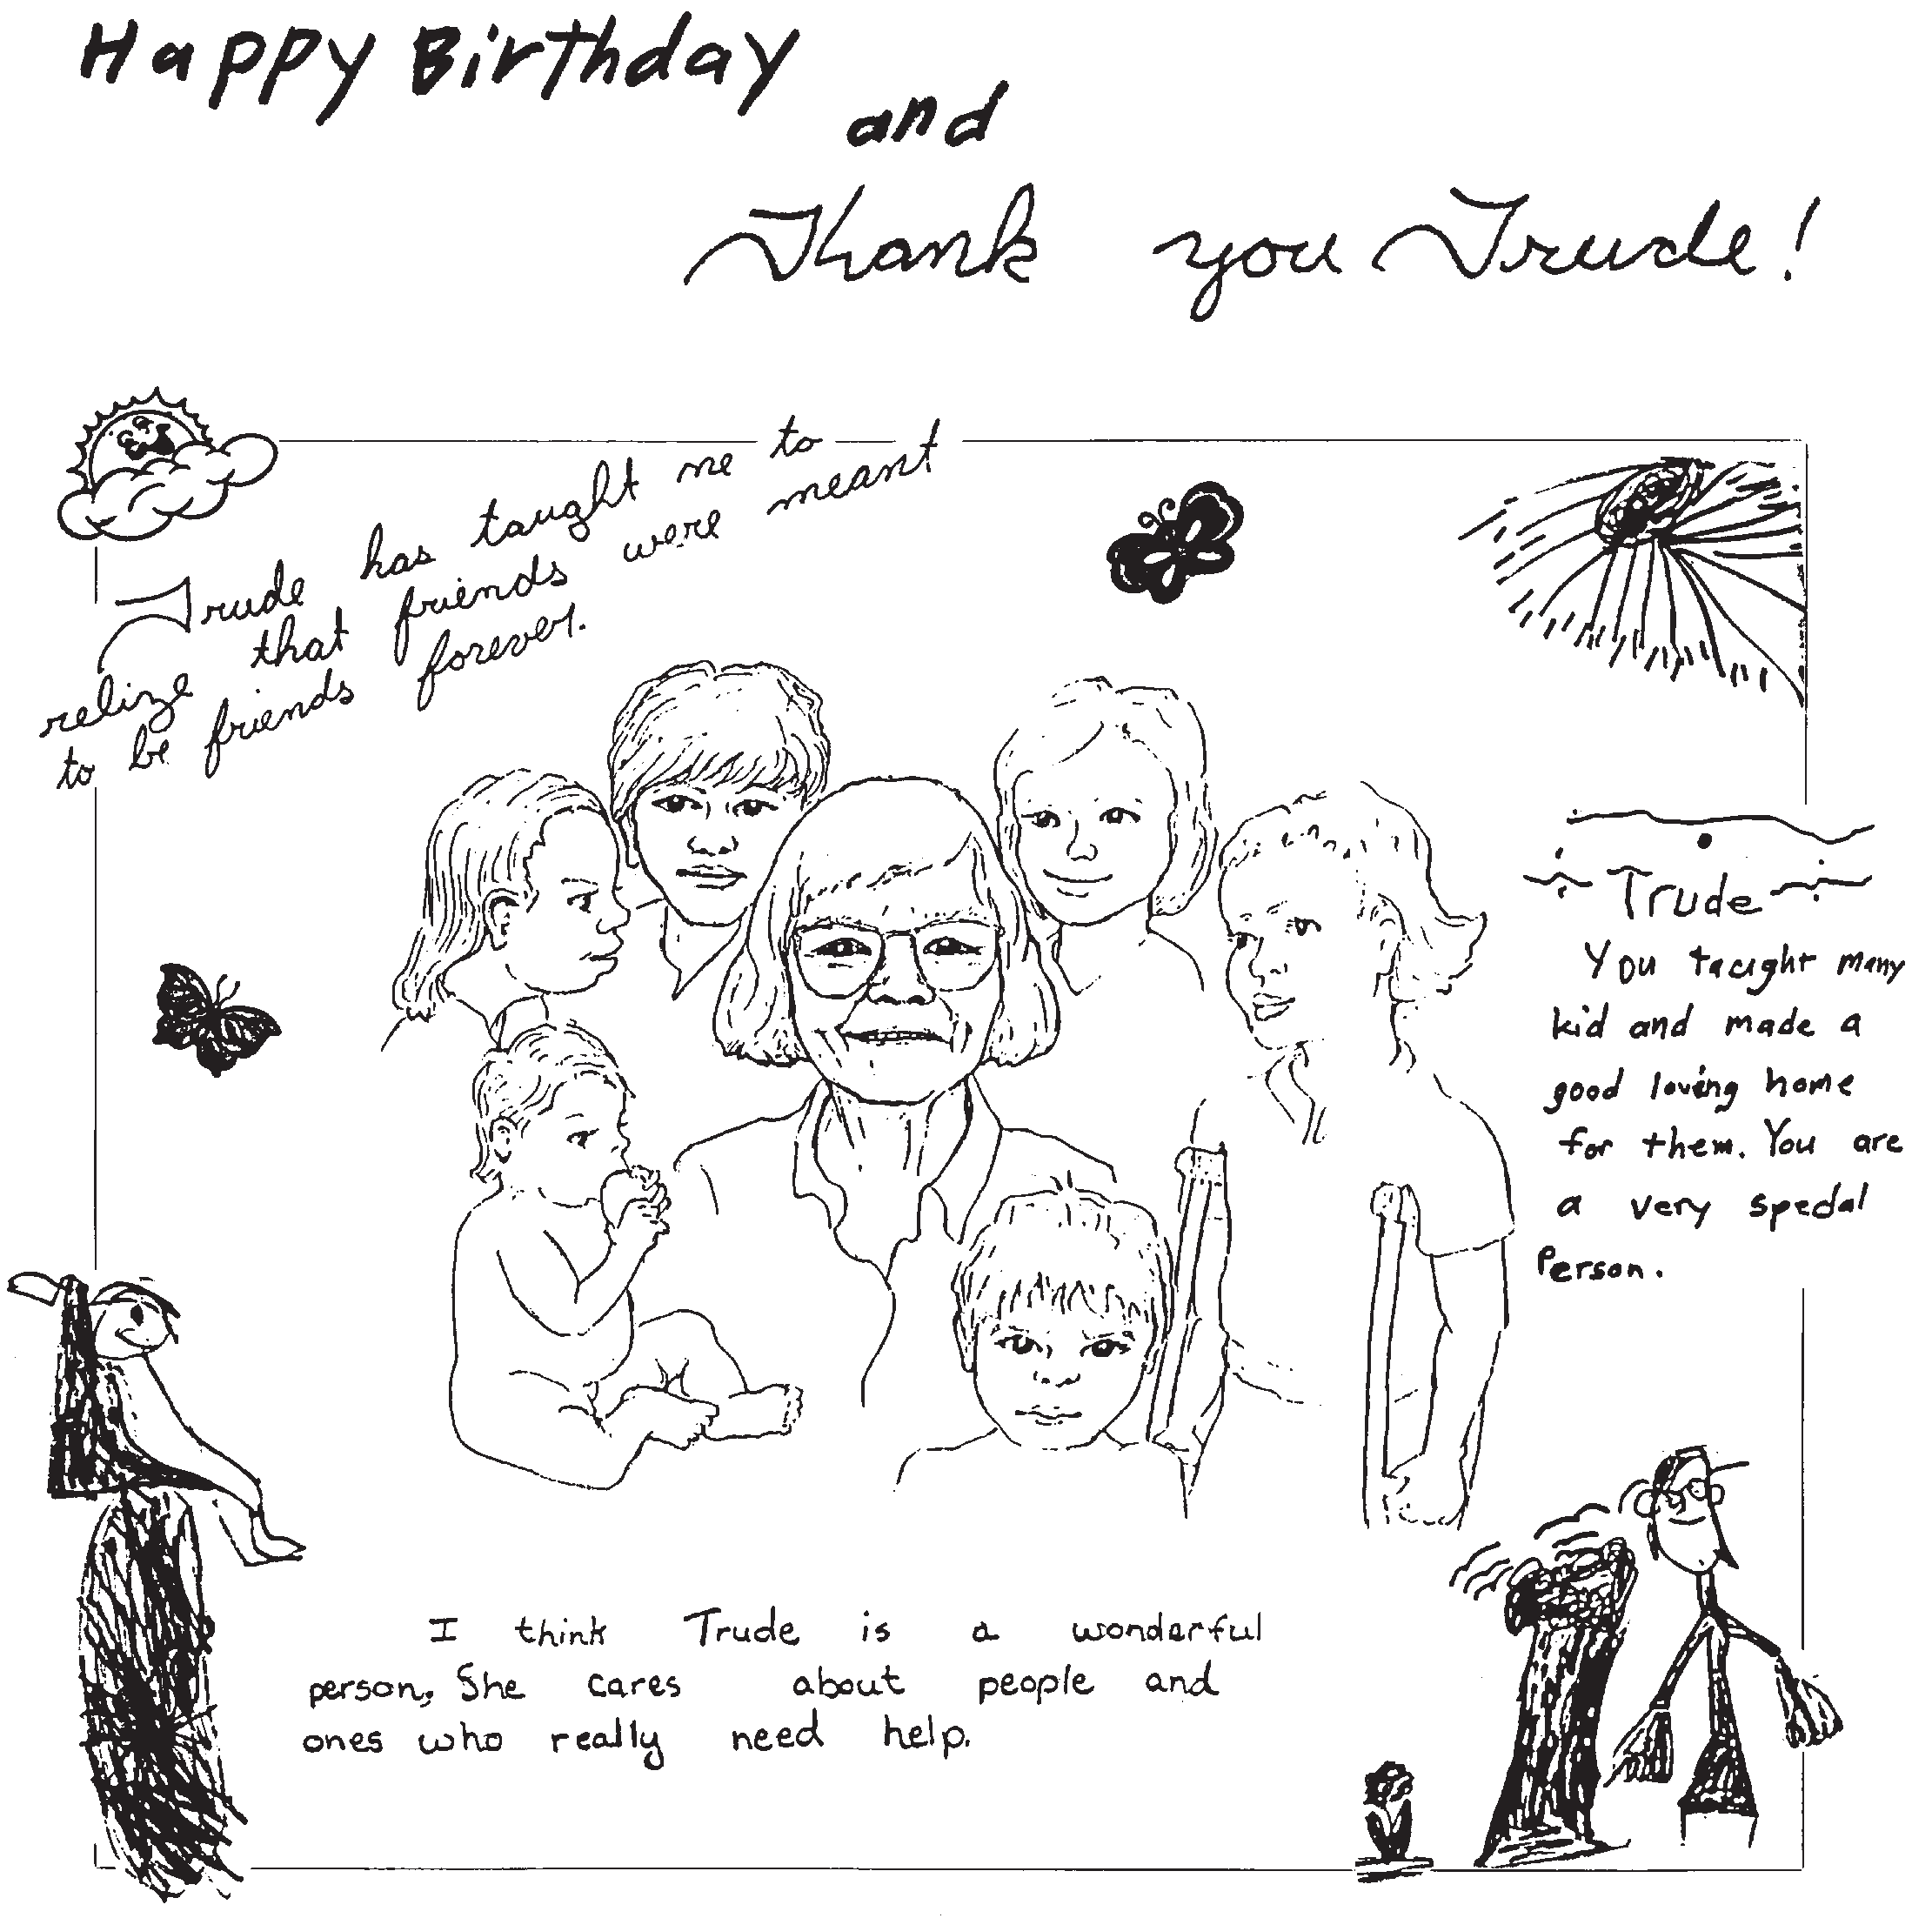 Happy Birthday
and
Thank you Trude!
Trude has taught me to
relize that friends were meant
to be friends forever.
Trude
You taught many
kid and made a
good loving home
for them. You are
a very specal
Person.
I think Trude is a wonderful
person, She cares about people and
ones who really need help.